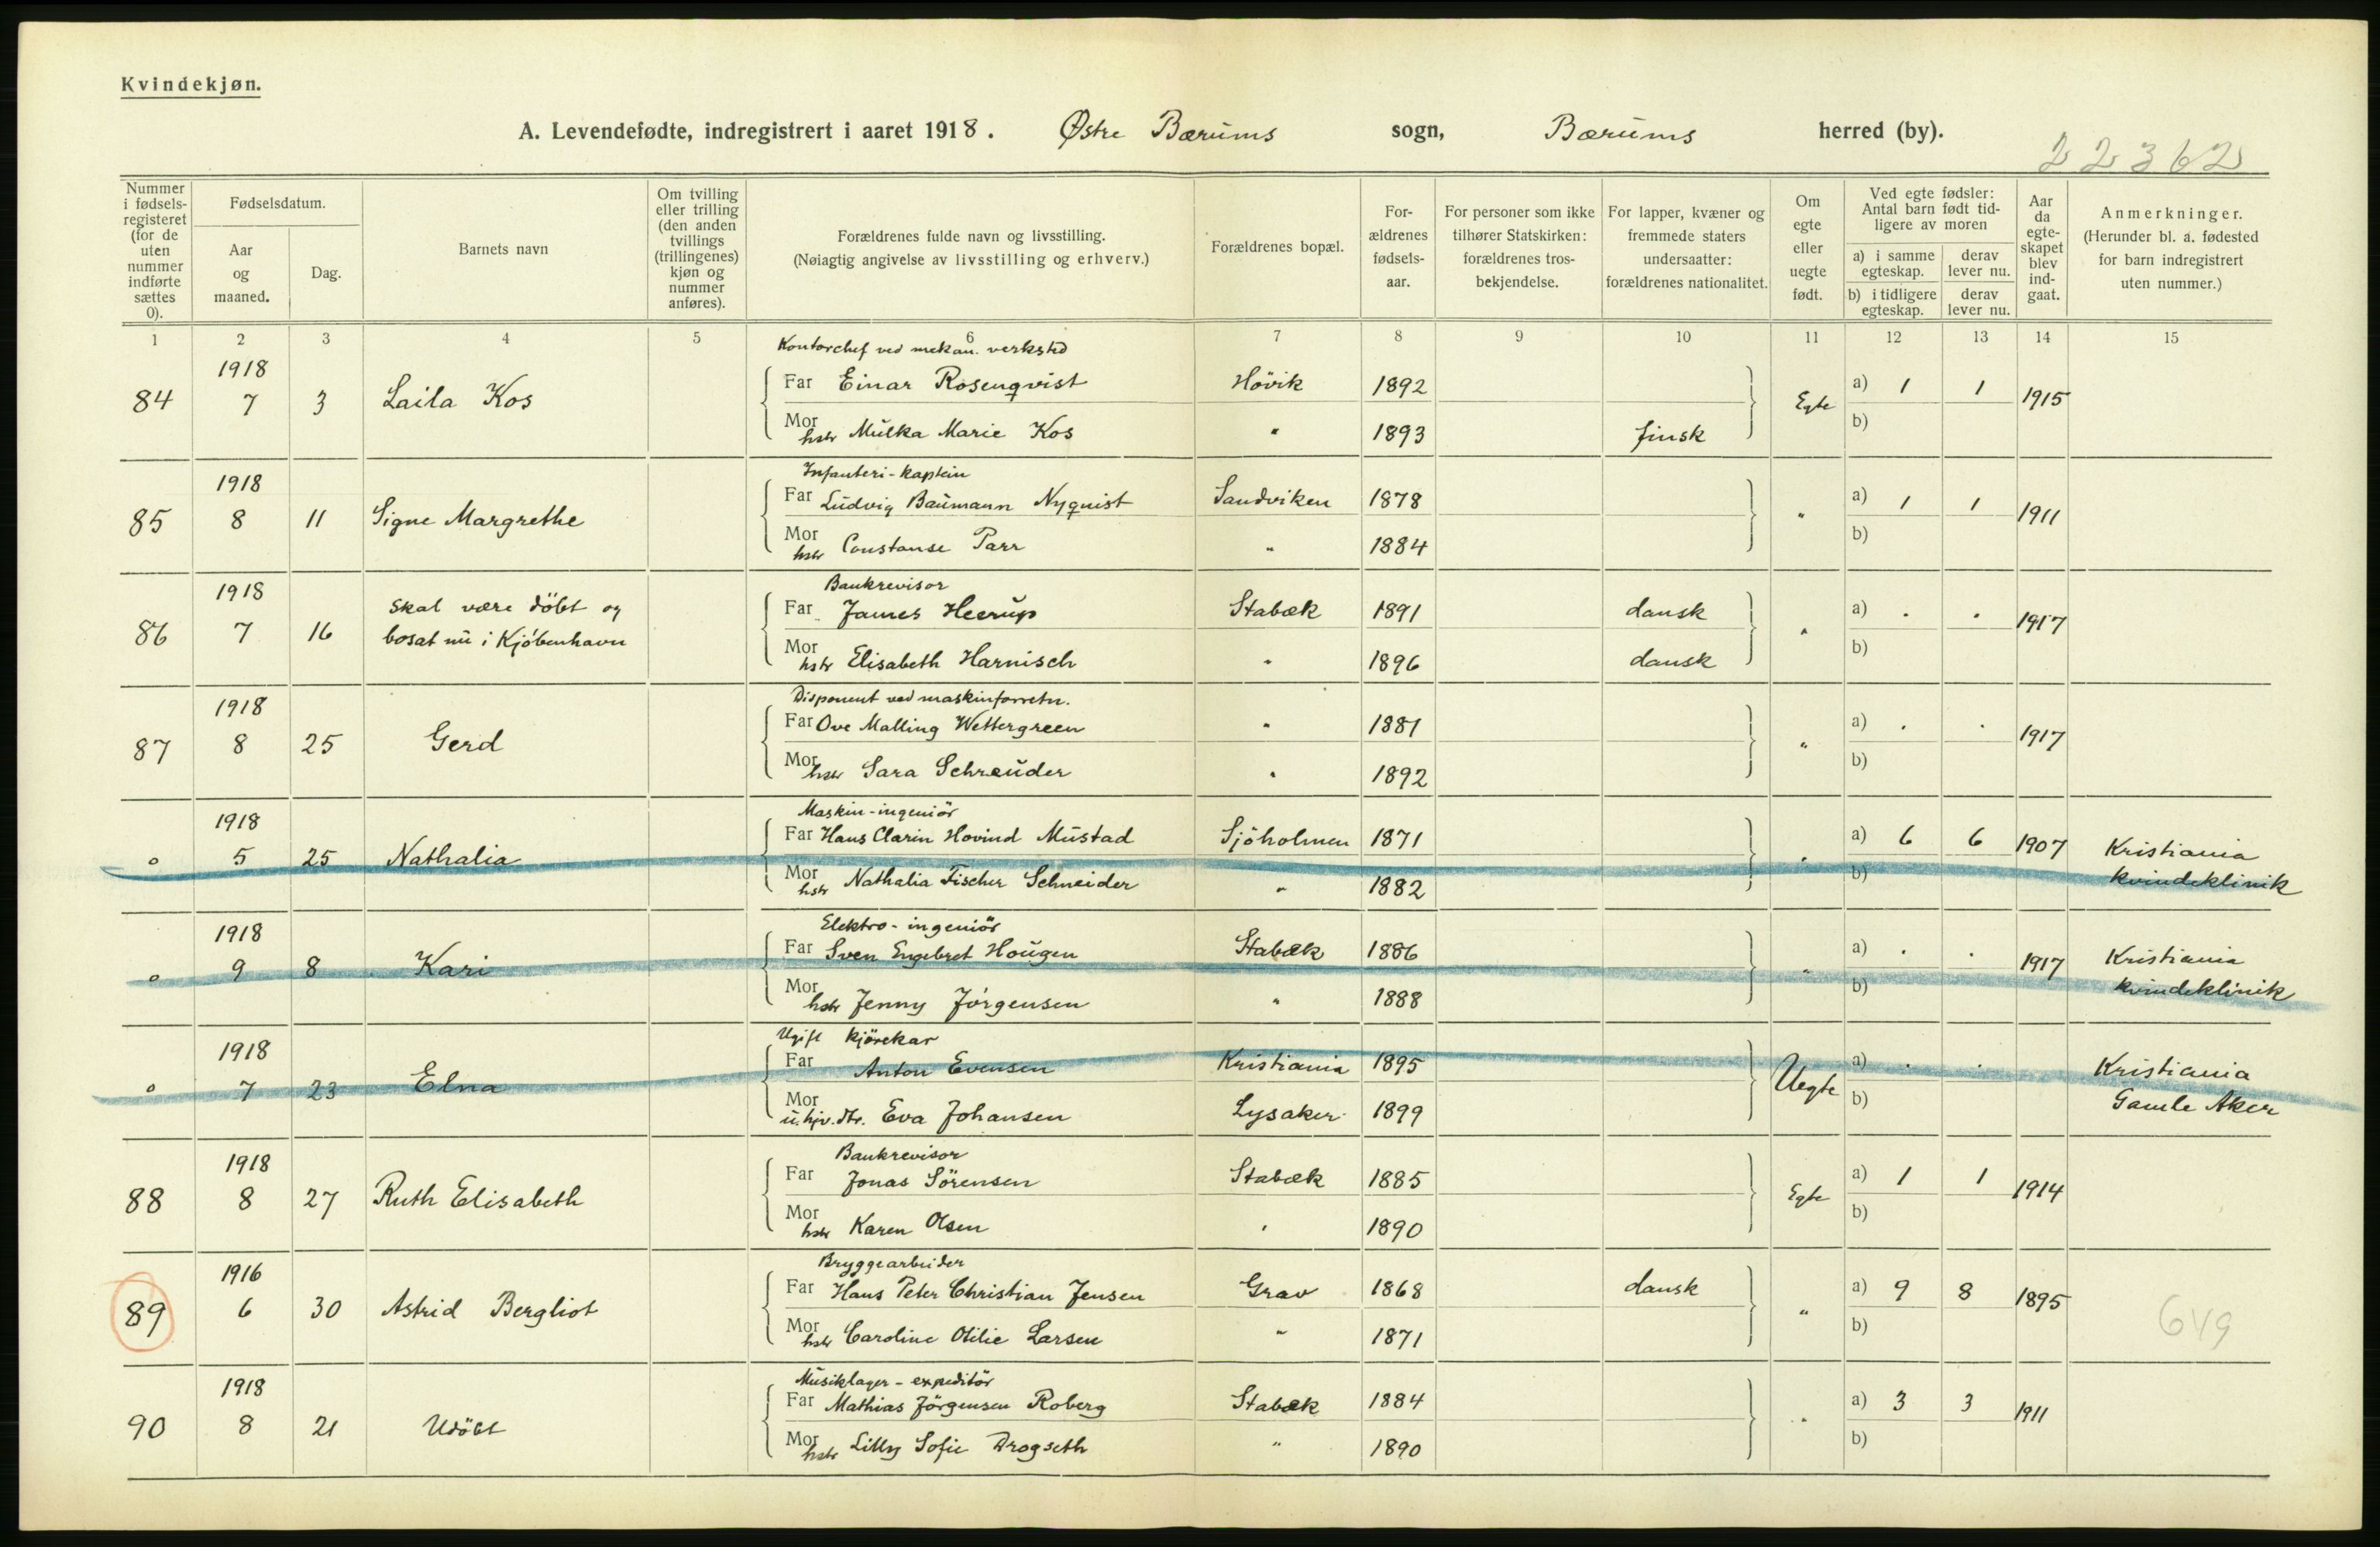 Kvindekjøn.
A. Levendefødte, indregistrert i aaret 1918. Østre Bærums sogn, Bærums herred (by).
22362
Nummer i fødsels-registeret (for de uten nummer indførte sættes 0).
Fødselsdatum.
Aar og maaned.
Dag.
Barnets navn
Om tvilling eller trilling (den anden tvillings (trillingenes) kjøn og nummer anføres).
Forældrenes fulde navn og livsstilling.
(Nøiagtig angivelse av livsstilling og erhverv.)
Forældrenes bopæl.
For-ældrenes fødsels-aar.
For personer som ikke tilhører Statskirken: forældrenes tros-bekjendelse.
For lapper, kvæner og fremmede staters undersaatter: forældrenes nationalitet.
Om egte eller uegte født.
Ved egte fødsler: Antal barn født tid-ligere av moren
a) i samme egteskap.
derav lever nu.
b) i tidligere egteskap.
derav lever nu.
Aar da egte-skapet blev ind-gaat.
Anmerkninger.
(Herunder bl. a. fødested for barn indregistrert uten nummer.)
1 2 3 4 5 6 7 8 9 10 11 12 13 14 15
Kontorchef ved mekan. verksted
1918
84 7 3 Laila Kos Far Einar Rosenqvist Hövik 1892 Egte a) 1 1 1915
Mor hstr Mulka Marie Kos " 1893 finsk b)
Infanteri-kaptein
1918
85 8 11 Signe Margrethe Far Ludvig Baumann Nyquist Sandviken 1878 " a) 1 1 1911
Mor hstr Constanse Parr " 1884 b)
Bankrevisor
1918
86 7 16 Skal være döbt og bosat nu i Kjöbenhavn Far James Heerup Stabæk 1891 dansk " a) . . 1917
Mor hstr Elisabeth Harnisch " 1896 dansk b)
Disponent ved maskinforretn.
1918
87 8 25 Gerd Far Ove Malling Wettergreen " 1881 " a) . . 1917
Mor hstr Sara Schreuder " 1892 b)
Maskin-ingeniör
1918
0 5 25 Nathalia Far Hans Clarin Hovind Mustad Sjöholmen 1871 " a) 6 6 1907 Kristiania
Mor hstr Nathalia Fischer Schneider " 1882 b) kvindeklinik
Elektro-ingeniör
1918
0 9 8 Kari Far Sven Engebret Hougen Stabæk 1886 " a) . . 1917 Kristiania
Mor hstr Jenny Jörgensen " 1888 b) kvindeklinik
Ugift kjörekar
1918
0 7 23 Elna Far Anton Evensen Kristiania 1895 Uegte a) . . Kristiania
Mor u. hjv. dtr. Eva Johansen Lysaker 1899 b) Gamle Aker
Bankrevisor
1918
88 8 27 Ruth Elisabeth Far Jonas Sörensen Stabæk 1885 Egte a) 1 1 1914
Mor hstr Karen Olsen " 1890 b)
Bryggearbeider
1916
89 6 30 Astrid Bergliot Far Hans Peter Christian Jensen Grav 1868 dansk " a) 9 8 1895 649
Mor hstr Caroline Otilie Larsen " 1871 b)
Musiklager-expeditör
1918
90 8 21 Udöbt Far Mathias Jörgensen Roberg Stabæk 1884 " a) 3 3 1911
Mor hstr Lilly Sofie Drogseth " 1890 b)